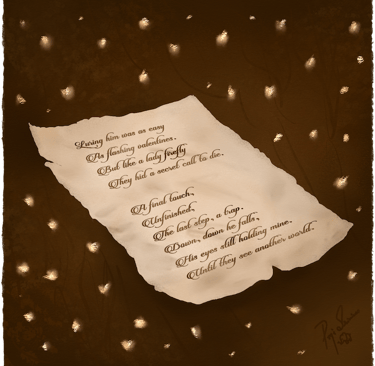 Luring him was as easy
As flashing valentines.
But like a lady firefly
They hid a secret call to die.
A final touch,
Unfinished,
The last step, a trap.
Down, down he falls,
His eyes still holding mine,
Until they see another world.